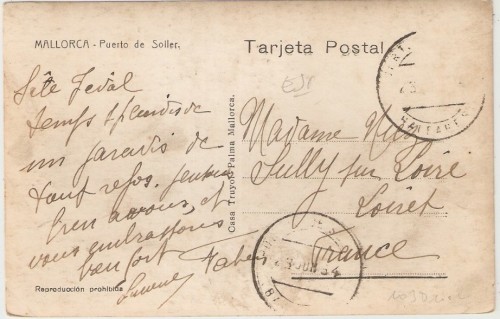 MALLORCA - Puerto de Soller.
Tarjeta Postal
Site idéal
temps splendide
un paradis de
tout repos.
bien à vous, et
vous embrassons
bien fort
Casa Truyol-Palma Mallorca.
Madame
Sully sur Loire
Loiret
France
JUN 34
Reproducción prohibida